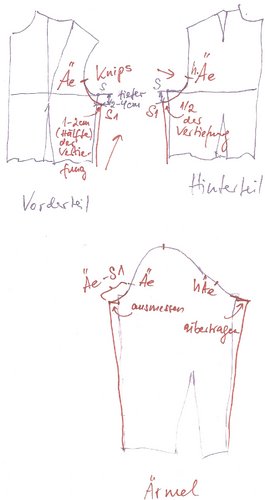 Äe
Knips
S
tiefer
2-4cm
S1
1-2cm
(Hälfte)
der
Vertie-
fung
Vorderteil
S
hÄe
S1
1/2
der
Vertiefung
Hinterteil
Äe-S1
Äe
hÄe
ausmessen
übertragen
Ärmel